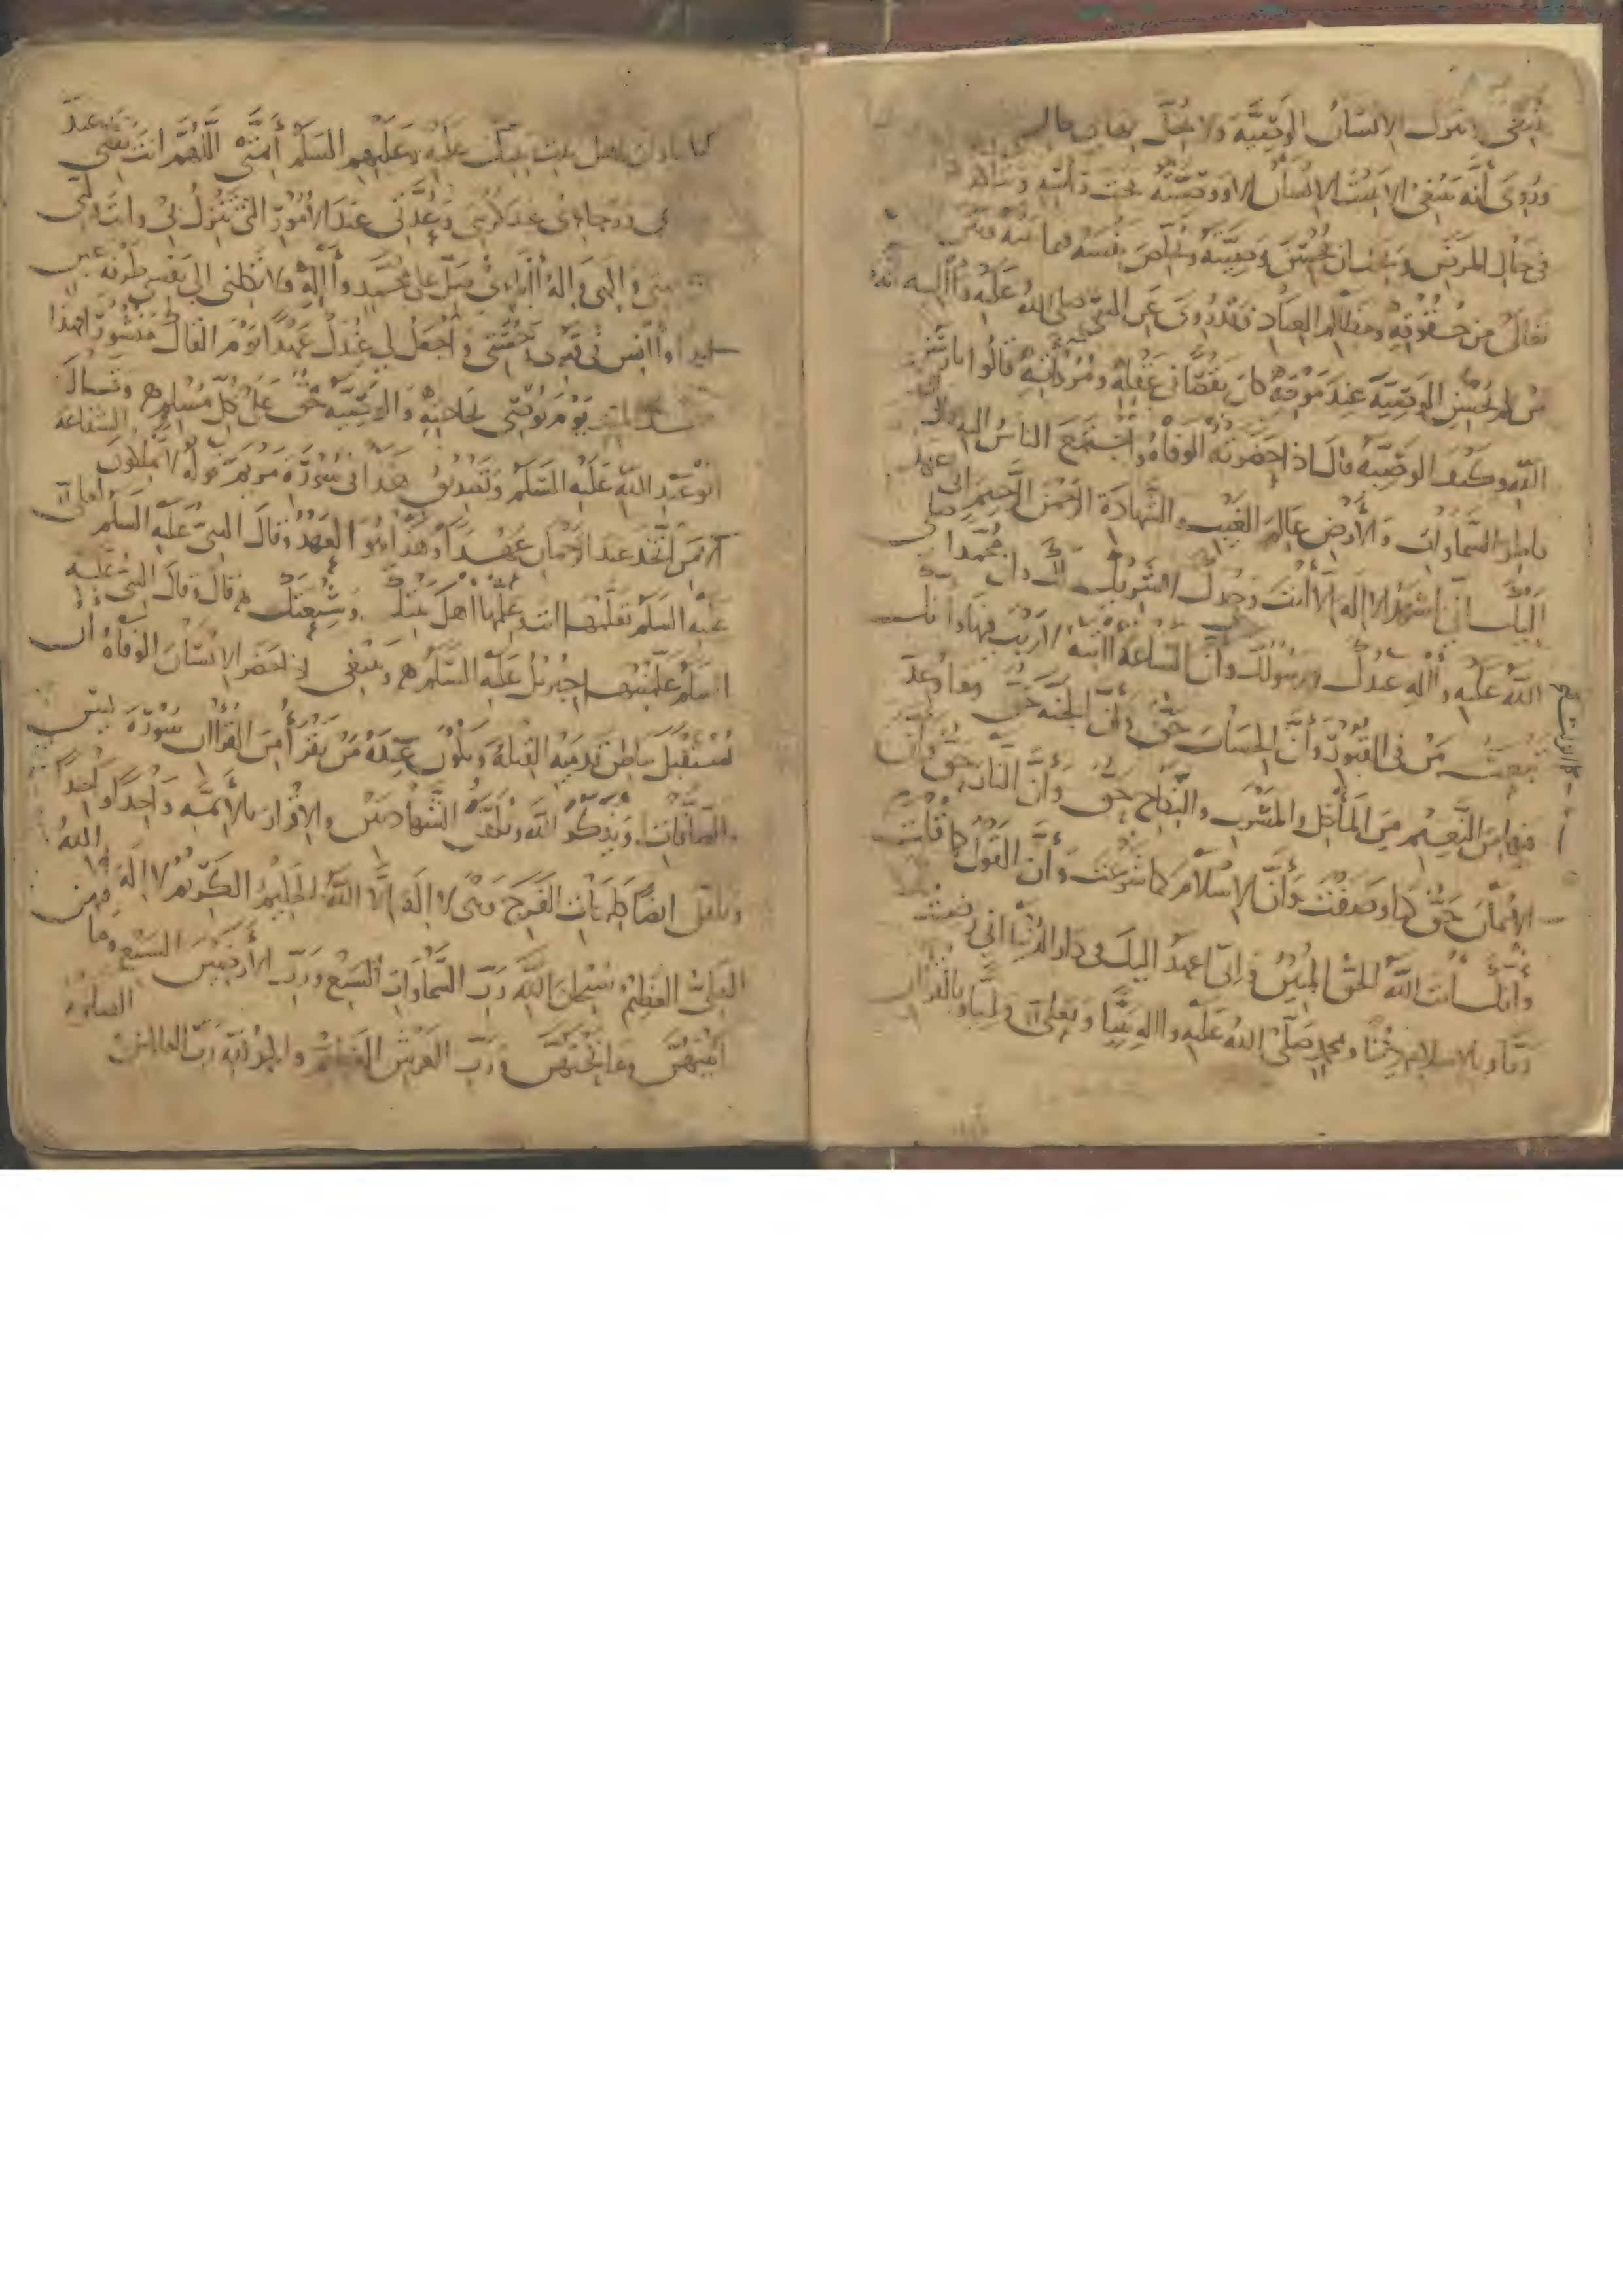 ينبغي ان يترك الانسان الوصية ولا يخل بها في حال
وروي أنه ينبغي الا يبيت الانسان الا ووصيته تحت رأسه ويتأكد ذلك
في حال المرض ويجب ان يحسن وصيته ويخلص نفسه فيما بينه وبين الله
تعالى من حقوقه ومظالم العباد فقد روي عن النبي صلى الله عليه وآله انه قال
من لم يحسن الوصية عند موته كان نقصا في عقله ومروءته قالوا يا رسول
الله وكيف الوصية قال اذا حضرته الوفاة واجتمع الناس اليه قال اللهم
فاطر السماوات والأرض عالم الغيب والشهادة الرحمن الرحيم اني اعهد
إليك اني اشهد الا اله الا أنت وحدك لا شريك لك وان محمدا صلى
الله عليه وآله عبدك ورسولك وان الساعة آتية لا ريب فيها وانك
تبعث من في القبور وأن الحساب حق وان الجنة حق وما وعد
فيها من النعيم من المأكل والمشرب والنكاح حق وأن النار حق وأن
الايمان حق كما وصفت وأن الاسلام كما شرعت وأن القول كما قلت
وانك أنت الله الحق المبين واني اعهد اليك في دار الدنيا اني رضيت بك
ربا وبالاسلام دينا وبمحمد صلى الله عليه وآله نبيا وبعلي وليا وبالقرآن
كتابا وان اهل بيت نبيك عليه وعليهم السلم أئمتي اللهم انت ثقتي عند
شدتي ورجائي عند كربتي وعدتي عند الأمور التي تنزل بي وانت وليي
في نعمتي وإلهي وإله آبائي صل على محمد وآله ولا تكلني الى نفسي طرفة عين
ابدا وآنس في قبري وحشتي واجعل لي عندك عهدا يوم القاك منشورا فهذا
عهد الميت يوم يوصي بحاجته والوصية حق على كل مسلم وقال
أبو عبد الله عليه السلم وتصديق هذا في سورة مريم قوله لا يملكون الشفاعة
الا من اتخذ عند الرحمان عهدا وهذا هو العهد وقال النبي عليه السلم لعلي
عليه السلم تعلمها انت وعلمها اهل بيتك وشيعتك قال وقال النبي عليه
السلم علمنيها جبرئيل عليه السلم وينبغي اذا حضر الانسان الوفاة ان
يستقبل بباطن قدميه القبلة ويكون عنده من يقرأ من القرآن سورة يس
والصافات ويذكر الله ويلقن الشهادتين والاقرار بالأئمة واحدا واحدا
ويلقن ايضا كلمات الفرج وهي لا اله الا الله الحليم الكريم لا اله الا الله
العلي العظيم سبحان الله رب السماوات السبع ورب الأرضين السبع وما فيهن
وما بينهن وما تحتهن ورب العرش العظيم والحمد لله رب العالمين